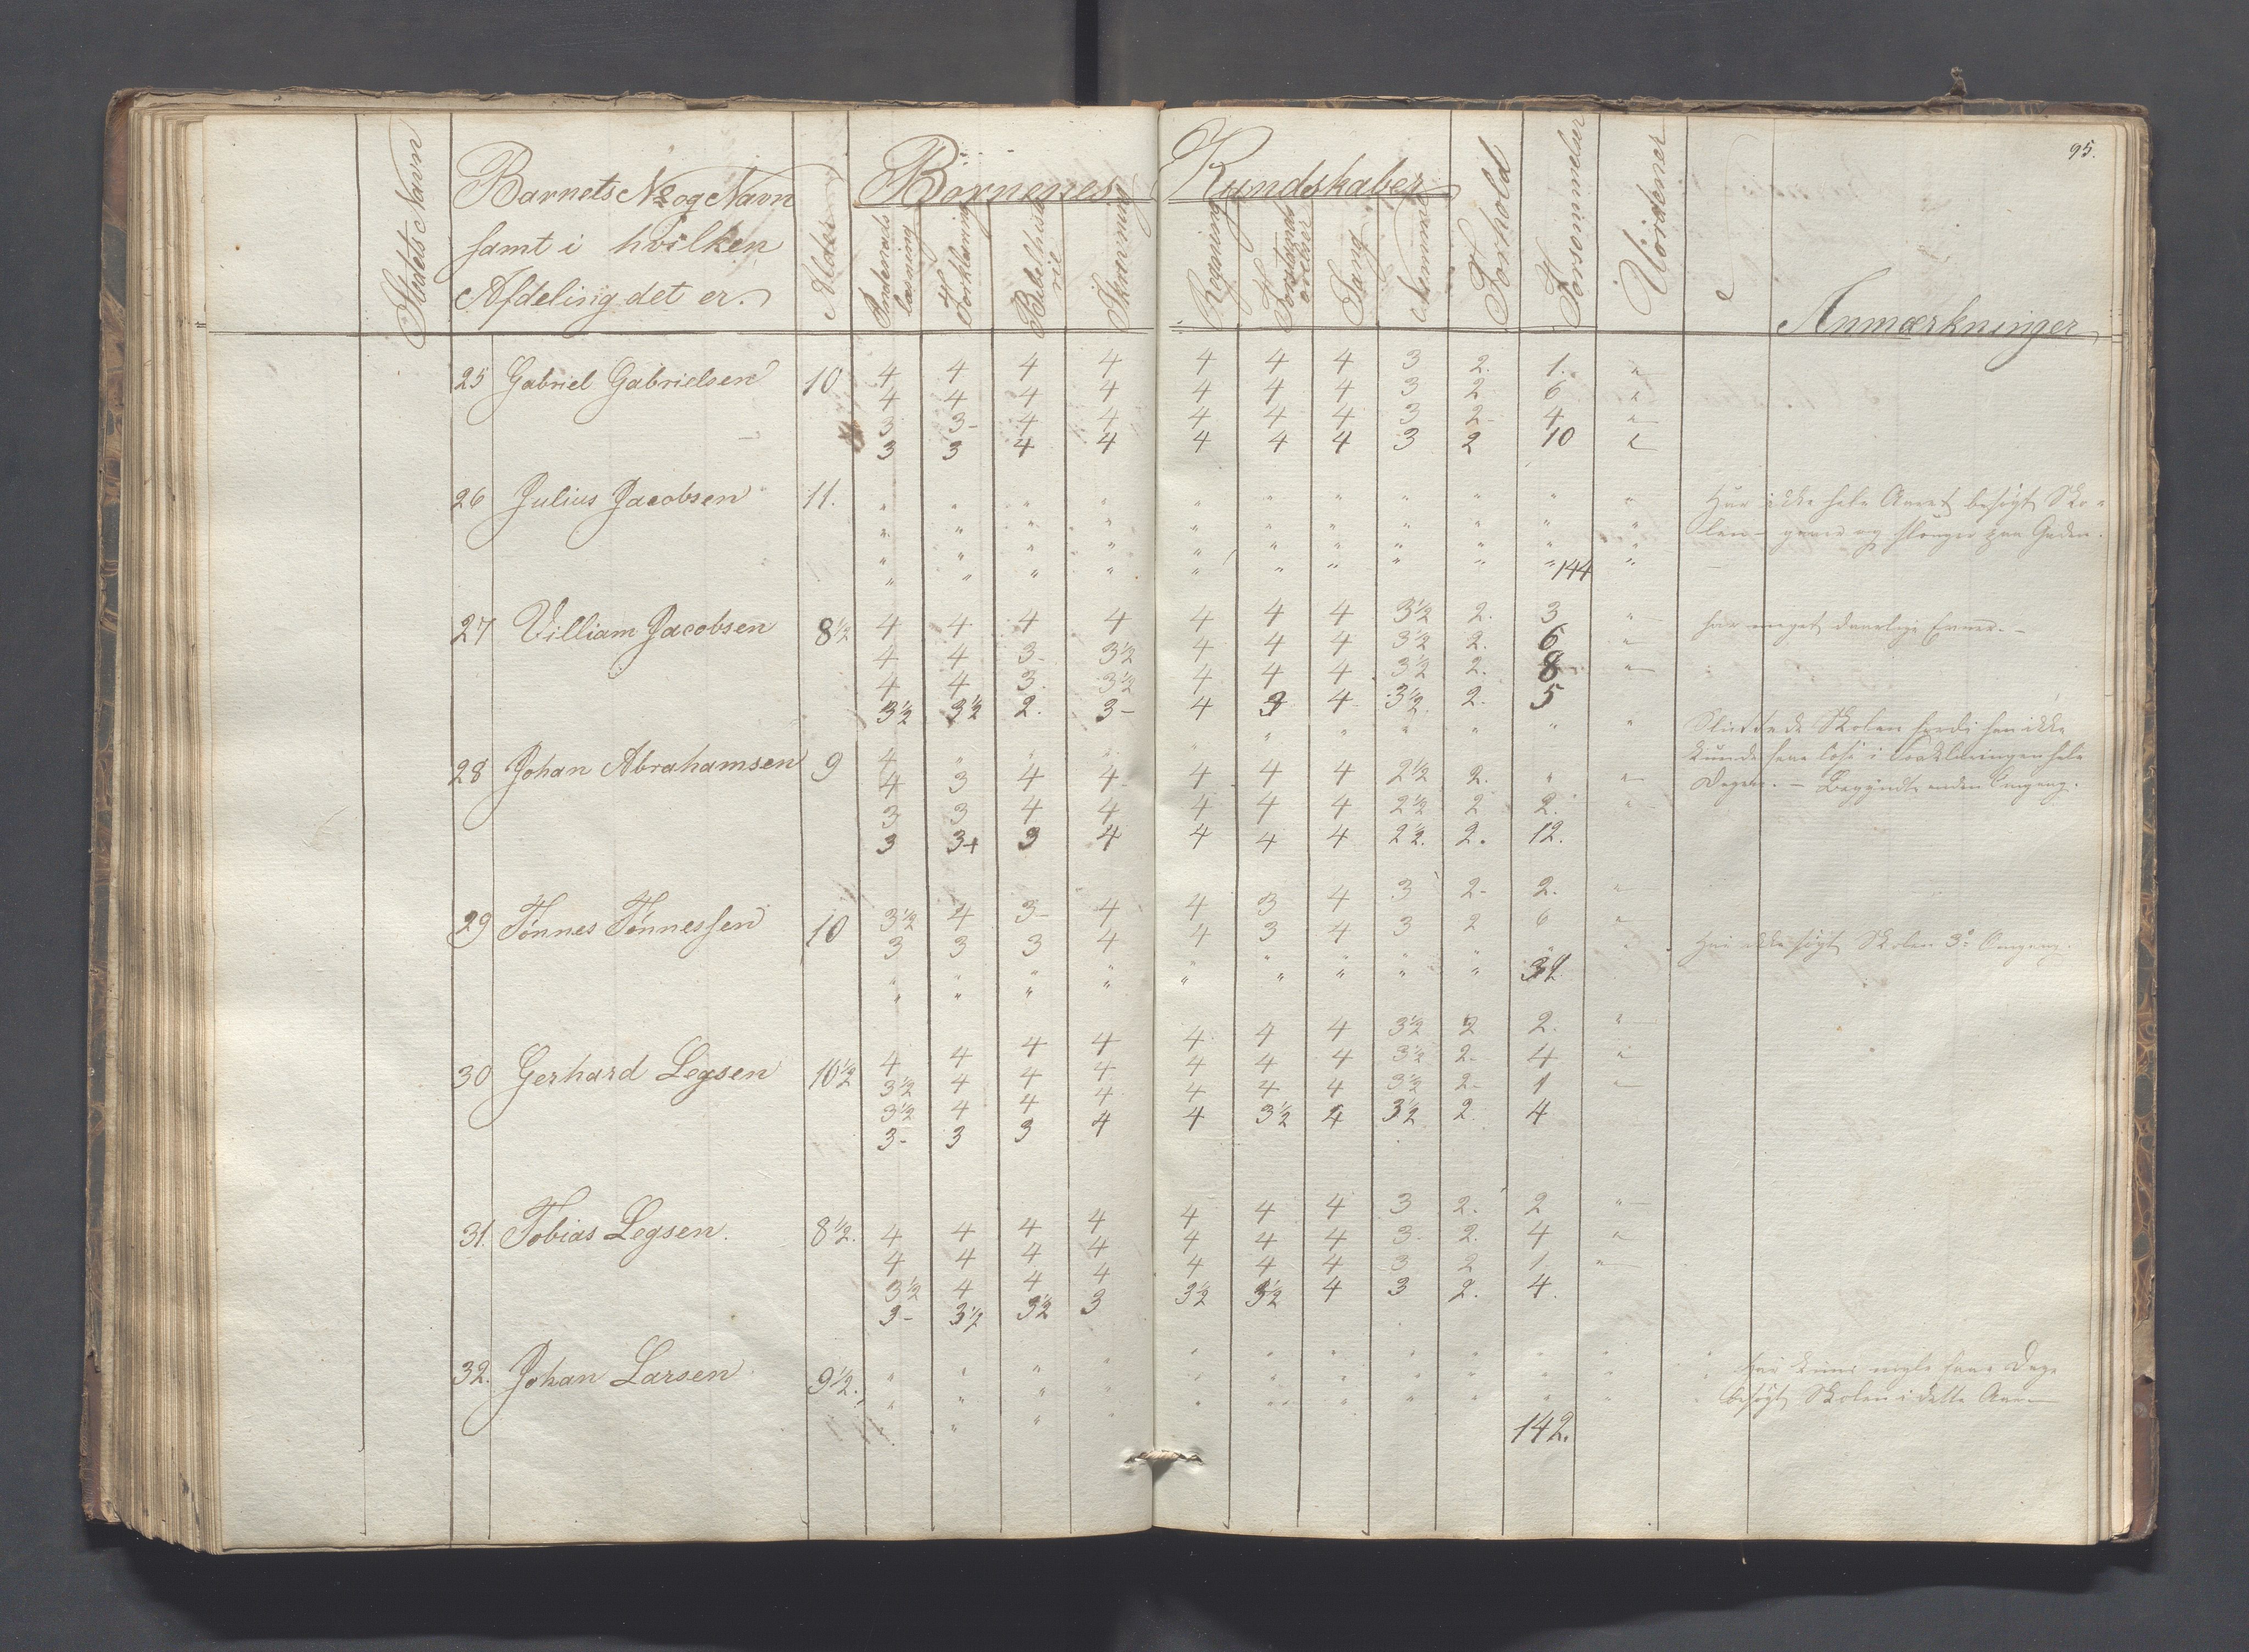 95.
Stedets Navn
Barnets No og Navn
samt i hvilken
Afdeling det er.
Alder
Børnenes Kundskaber
Indenads
læsning
Forklaring
Bibelhisto
rie
Skrivning
Regning
Forstands
øvelser
Sang
Nemme
Forhold
Forsømmelser
Uordener
Anmærkninger
25 Gabriel Gabrielsen 10 4 4 4 4 4 4 4 3 2. 1. "
4 4 4 4 4 4 4 3 2 6 "
3 3- 4 4 4 4 4 3 2- 4 "
3 3 4 4 4 4 4 3 2 10 "
26 Julius Jacobsen 11. " " " " " " " " " " " Har ikke hele Aaret besøgt Sko-
" " " " " " " " " " " len - og paa Gaden.
" " " " " " " " " " "
" " " " " " " " " " 144 "
27 Villiam Jacobsen 8½ 4 4 4 4 4 4 4 3½ 2. 3 " har meget daarlige Evner. -
4 4 3- 3½ 4 4 4 3½ 2. 6 "
4 4 3. 3½ 4 4 4 3½ 2. 8 "
3½ 3½ 2. 3- 4 3 4 3½ 2. 5
28 Johan Abrahamsen 9 4 " " " " " " " " " " Sluttede Skolen fordi han ikke
4 3 4 4 4 4 4 2½ 2. " " kunde i Forklaringen hele
3 3 4 4 4 4 4 2½ 2 2. " Dagen. - Begyndte anden Omgang.
3 3+ 3 4 4 4 4 2½. 2. 12.
29 Tønnes Tønnessen 10 3½ 4 3- 4 4 3 4 3 2- 2. "
3 3 3 4 4 3 4 3 2 6 "
" " " " " " " " " " " Har ikke søgt Skolen 3d Omgang.
" " " " " " " " " 32
30 Gerhard Legsen 10½ 4 4 4 4 4 4 4 3½ 2 2. "
3½ 4 4 4 4 4 4 3½ 2- 4 "
3½ 4 4 4 4 4 4 3½ 2- 1 "
3- 3 3 4 4 3½ 4 3½ 2. 4
31. Tobias Legsen. 8½. 4 4 4 4 4 4 4 3 2. 2 "
4 4 4 4 4 4 4 3. 2. 4 "
3½ 4 4 4 4 4 4 3 2 1. "
3- 3½ 3½ 3 3½ 3½ 4 3 2. 4.
32. Johan Larsen 9½. " " " " " " " " " " " har kuns nogle faae Dage
" " " " " " " " " " " besøgt Skolen i dette Aar
" " " " " " " " " " "
142.